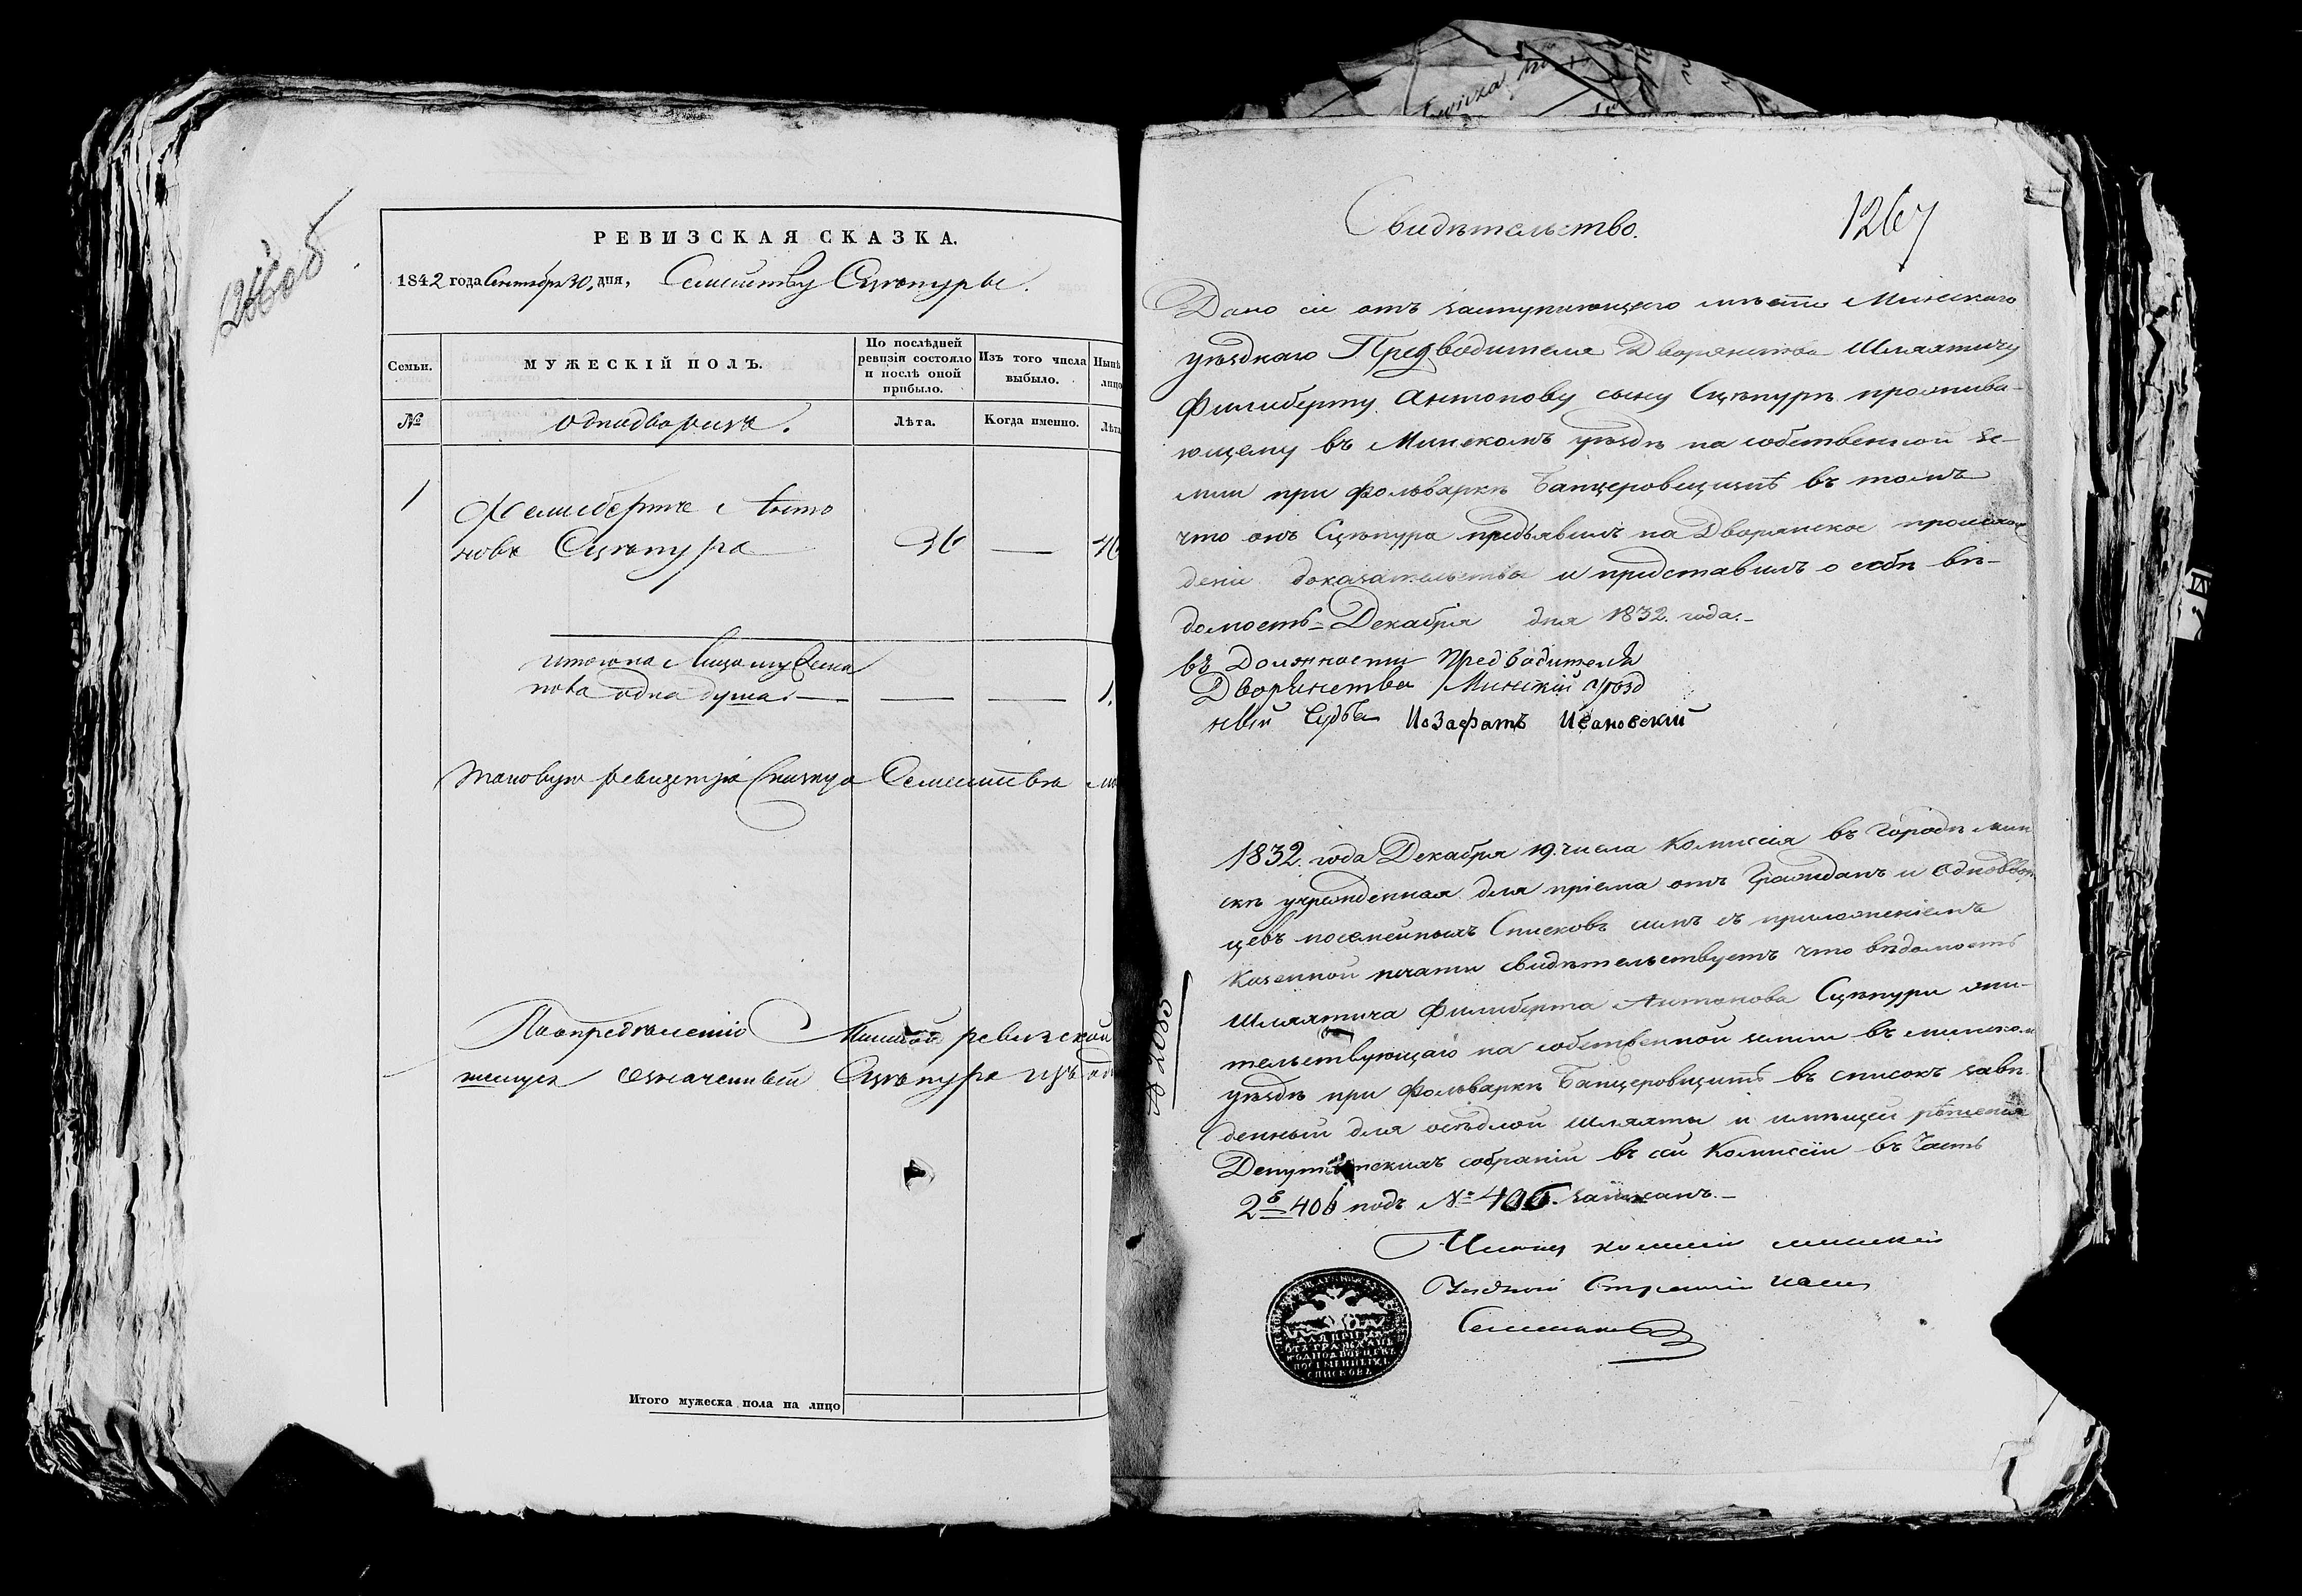 1266об
РЕВИЗСКАЯ СКАЗКА.
1842 года Сентября 30, дня, Семейству Сцепуры.
Семьи.
МУЖЕСКІЙ ПОЛЪ.
По послѣдней ревизіи состояло и послѣ оной прибыло.
Изъ того числа выбыло.
Нынѣ лицо
№
однодворцъ.
Лѣта.
Когда именно.
Лѣта
1
Филибертъ Анто
новъ Сцѣпура 36 — 46
Итого на лицо
одна душа. — — — 1.
Таковую
По опредѣленію Минской ревизской
означенный Сцѣпура изъ
Итого мужеска пола на лицо
1267
Свидѣтельство.
Дано сіе отъ заступающего мѣсто Минскаго
уѣзднаго Предводителя Дворянства Шляхтичу
Филиберту Антонову сыну Сцѣпурѣ прожива-
ющему въ Минскомъ уѣздѣ на собственной зе-
мли при фольваркѣ Банцеровщизнѣ въ томъ
что онъ Сцѣпура предъявилъ на Дворянское происхож
деніе доказательства и представилъ о себѣ вѣ-
домость Декабря дня 1832. года.-
въ Должности Предводителя
Дворянства Минскій Уѣзд
ный Судья Иозафатъ Ивановскій
1832. года Декабря 19. числа Комиссія въ Городѣ Мин
скѣ учрежденная для пріема отъ Гражданъ и Однодвор
цевъ посемейныхъ Списковъ симъ съ приложеніемъ
Казенной печати свидѣтельствуетъ что вѣдомость
Шляхтича Филиберта Антонова Сцѣпуры жи-
тельствующаго на собственной земли въ минском
уѣздѣ при Фольваркѣ Банцеровщизнѣ въ списокъ заве
денный для осѣдлой шляхты и имѣщей рѣшенія
Депутатскихъ собраній въ сей Комиссіи въ Часть
2ю 406 подъ № 406. записанъ.-
Членъ комисіи минскій
Уѣздной Стряпчій
ДЛЯ ПРІЕМА
ОТЪ ГРАЖДАНЪ
И ОДНОДВОРЦЕВЪ
ПОСЕМЕЙНЫХЪ
СПИСКОВЪ